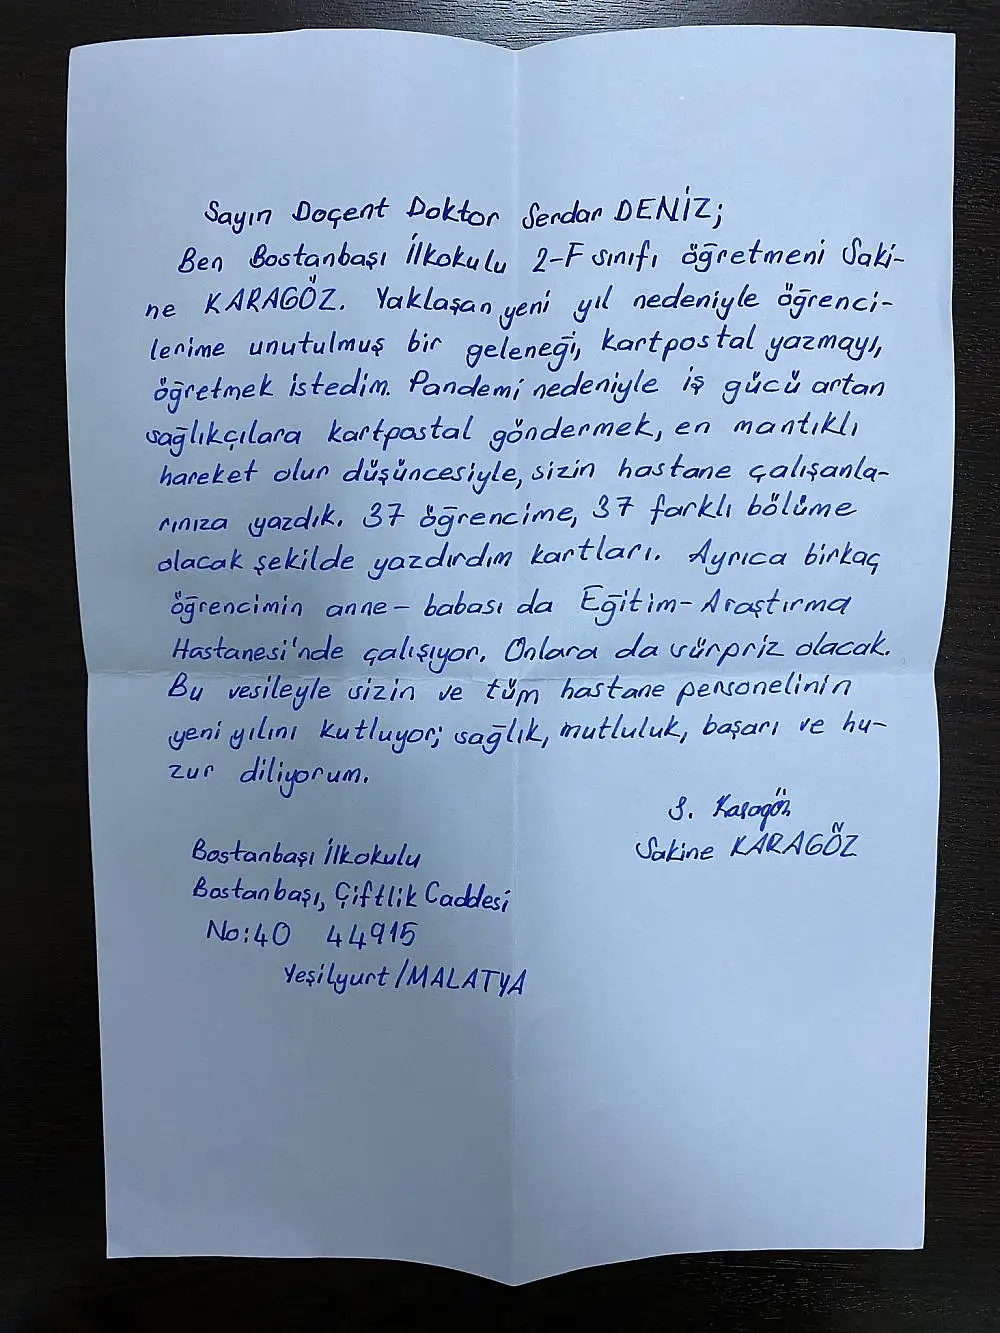 Sayın Doçent Doktor Serdar DENİZ;
Ben Bostanbaşı İlkokulu 2-F sınıfı öğretmeni Saki-
ne KARAGÖZ. Yaklaşan yeni yıl nedeniyle öğrenci-
lerime unutulmuş bir geleneği, kartpostal yazmayı,
öğretmek istedim. Pandemi nedeniyle iş gücü artan
sağlıkçılara kartpostal göndermek, en mantıklı
hareket olur düşüncesiyle, sizin hastane çalışanla-
rınıza yazdık. 37 öğrencime, 37 farklı bölüme
olacak şekilde yazdırdım kartları. Ayrıca birkaç
öğrencimin anne-babası da Eğitim-Araştırma
Hastanesi'nde çalışıyor. Onlara da sürpriz olacak.
Bu vesileyle sizin ve tüm hastane personelinin
yeni yılını kutluyor; sağlık, mutluluk, başarı ve hu-
zur diliyorum.
S. Karagöz
Sakine KARAGÖZ
Bostanbaşı İlkokulu
Bostanbaşı, Çiftlik Caddesi
No:40 44915
Yeşilyurt/MALATYA